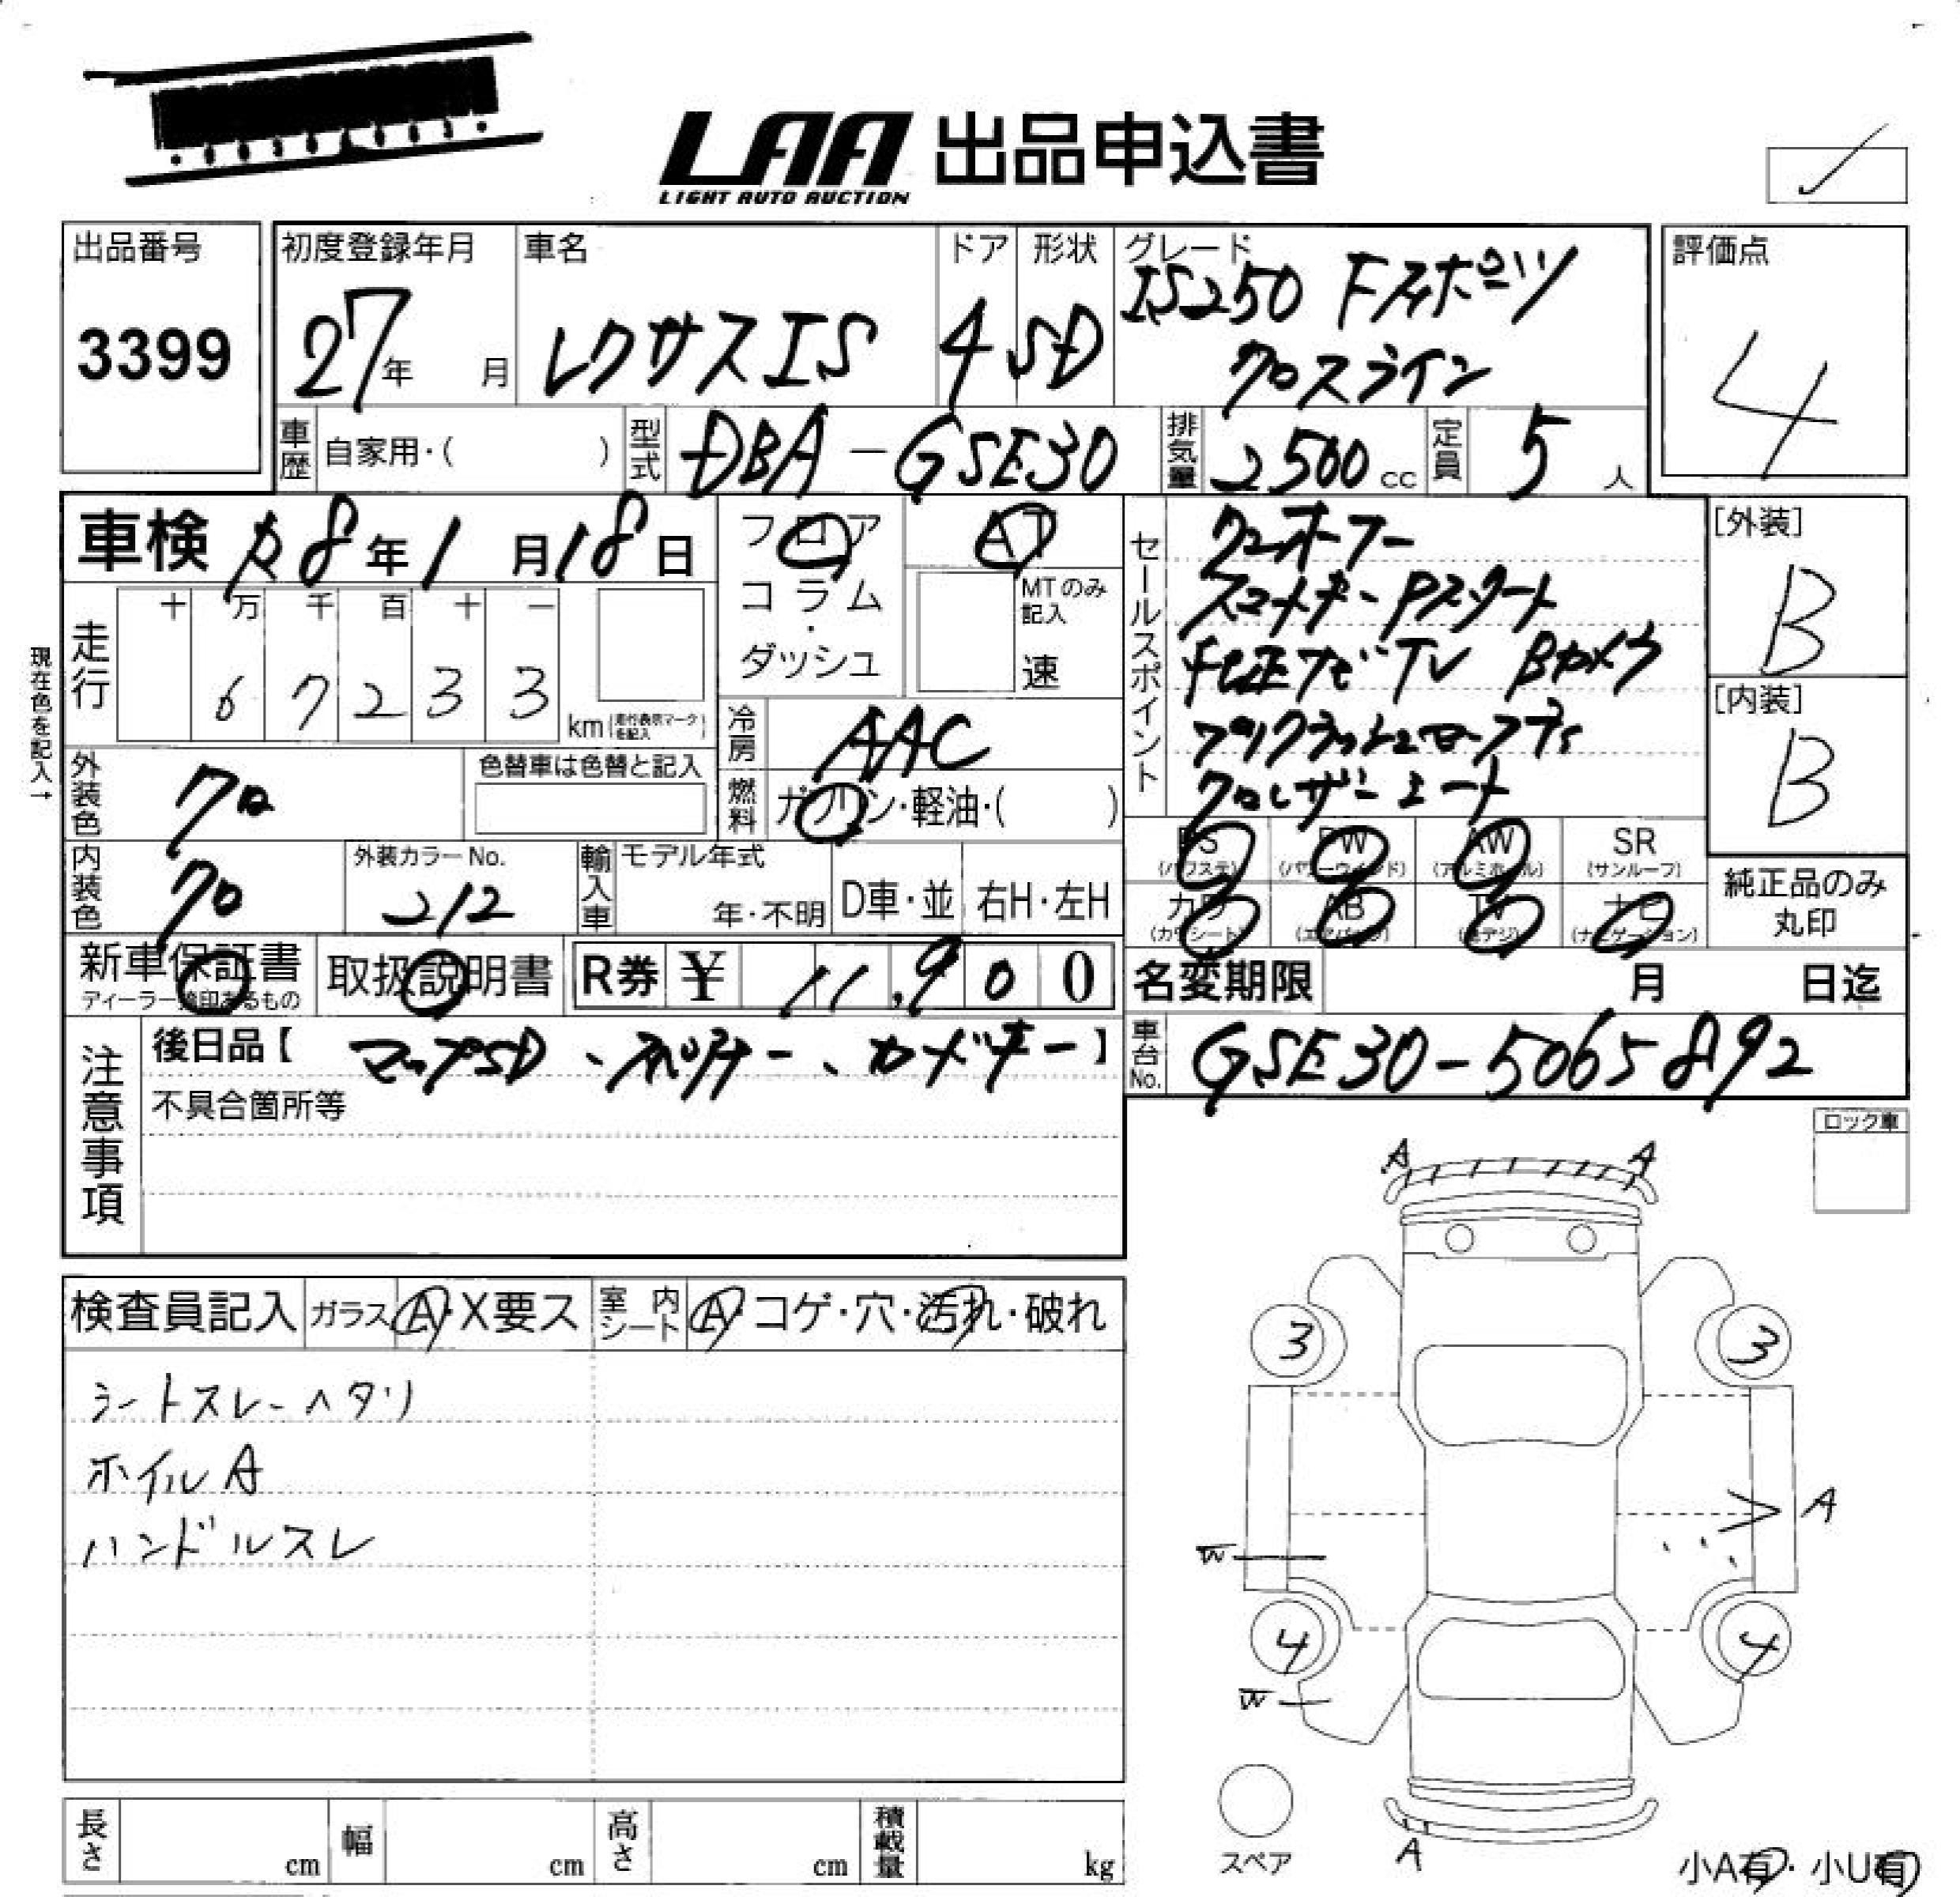 LAA 出品申込書
LIGHT AUTO AUCTION
出品番号
3399
初度登録年月
27年 月
車名
レクサスIS
ドア
4
形状
SD
グレード
IS250 Fスポーツ
クロスライン
評価点
4
車歴 自家用・( )
型式 DBA-GSE30
排気量 2500 cc
定員 5 人
車検 R8年1月18日
フロア
コラム
・
ダッシュ
AT
MTのみ記入
速
現在色を記入→
走行
十 万 千 百 十 一
6 7 2 3 3
km (走行表示マークを記入)
冷房 AAC
燃料 ガソリン・軽油・( )
外装色 クロ
色替車は色替と記入
内装色 クロ
外装カラーNo.
212
輸入車
モデル年式
年・不明
D車・並
右H・左H
セールスポイント
スマートキー Pスタート
純正ナビ TV Bカメラ
クロレザーシート
[外装]
B
[内装]
B
PS (パワステ)
PW (パワーウィンド)
AW (アルミホイール)
SR (サンルーフ)
カワ (カワシート)
AB (エアバッグ)
TV (地デジ)
ナビ (ナビゲーション)
純正品のみ
丸印
新車保証書
ディーラー捺印あるもの
取扱説明書
R券 ¥ 11,900
名変期限 月 日迄
車台No. GSE30-5065892
注意事項
後日品【マップSD、スペアキー、カードキー】
不具合箇所等
ロック車
検査員記入
ガラス A・X要ス
室内シート A・コゲ・穴・汚れ・破れ
シートスレ-ヘタリ
ホイルA
ハンドルスレ
A A
3 3
A
W
4 4
W
A
スペア
小A有・小U有
長さ cm
幅 cm
高さ cm
積載量 kg